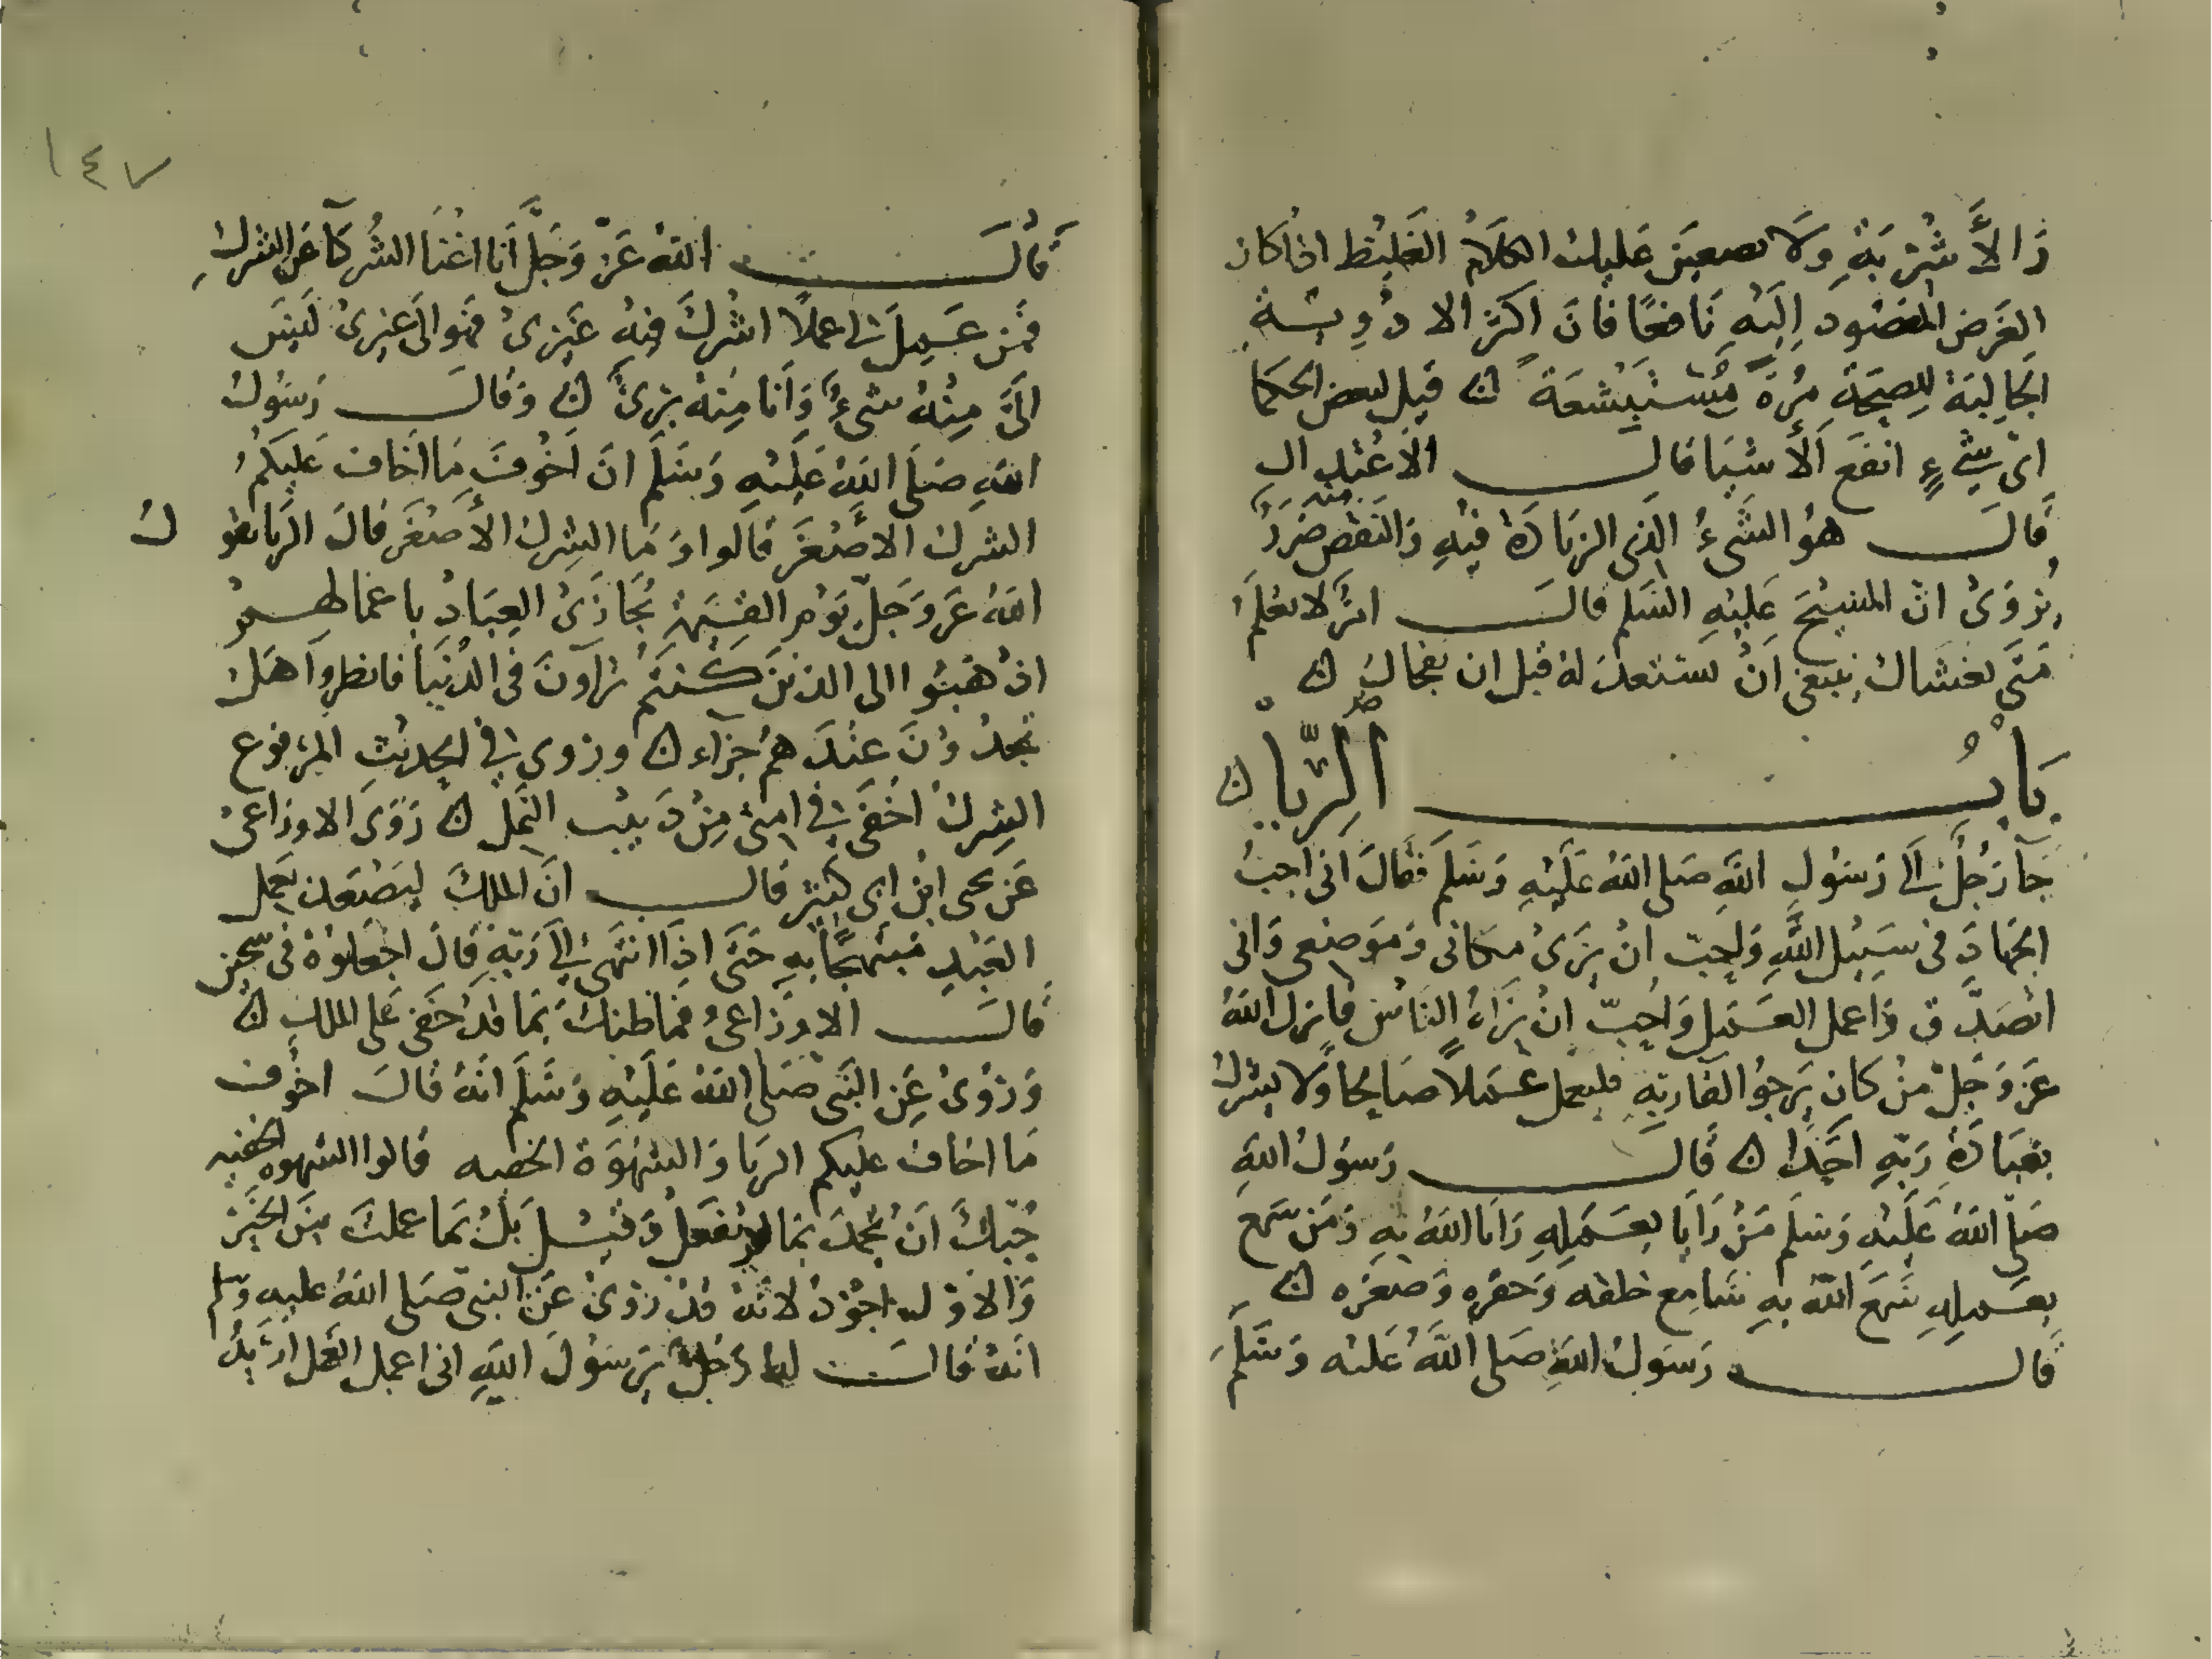 وَالأَشْرِبَةِ وَلَا يصعبن عَليك الكلَامُ الغَليْظ اذا كان
الغَرض المقصُود اِلَيْهِ نَافعًا فانَ اكثر الادْوِيَـةِ
الجَالِبَة لِلصِحَةِ مُرَّةً مُسْتَبْشعَة ن قيل لبعض الحكما
اى شَىءٍ انفَع الأَشيَا قالَ الاعْتدال
قَالَ هوُ الشَىءُ الذى الزيَادَة فيْهِ وَالنَقص منه ضرَرٌ
يُرْوَىُ انّ المسِيْحَ عَليْهِ السَلم قالَ امرٌ لا تعْلَمُ
مَتَى يغشاك ينبغى اَنْ تستعدَ لهُ قبل ان يفجاك ن
بَابُ الرِّيَا ن
جَآ رَجُلٌ اِلَى رَسُولِ اللَّهِ صَلى اللَهُ عَلَيْهِ وَسَلَمَ فقَالَ انى احِبُ
الجَهادَ فى سَبيْل اللَّهِ وَاحِبّ اِنْ يرَىُ مكانى وَموَضعى وَانى
اتصَدَّق وَاعمل العَـمَل وَاحِبّ اِنْ يَرَاهُ النَاسُ فانزل اللَهُ
عَز وَجَلّ مَنْ كان يَرجوُا لقَا رَبهِ فليعمل عَـمَلاً صَالِحًا وَلا يشْركْ
بعِبَادَةِ رَبّهِ احَدًا ن قالَ رَسوُلُ اللَهِ
صَلى اللَهُ عَلَيْهِ وَسَلم مَنْ رَايَا بعَـمَلِهِ رَايَا اللَهُ بهِ وَمَن سَمع
بعَـملِهِ سَمَعَ اللَّهُ بهِ سَامع خلقه وَحقرَهِ وَصغرَه ن
قال رَسوُلُ اللَهِ صَلى اللَّهُ عَليْه وَسَلَمَ
١٤٧
قَالَ اللَّهُ عَزّ وَجَلّ أنا اغْنَا الشُركآ عَن الشركِ
فمَن عَـمِلَ لى عملاً اشْركَ فيْهِ غَيْرىْ فهَوالى غيرىْ لَيسَ
الىَّ مِنْهُ شىءٌ وَأنا مِنهُ برىٌ ن وَقالَ رَسُولُ
اللَّهِ صَلَى اللَهُ عَلَيْهِ وَسَلَمَ انَ اخْوفَ مَا اَخاف عَليْكمُ
الشرك الاصْغَرَ قالوا وَمَا الشِرك الأصْغَر قالَ الرّيَا يقوُل
اللَهُ عَز وَجَلّ يوْم القيْمَهْ يُجَازَىُ العِبَادُ باعمَالهـمْ
اذْهَبُوا الى الذيْنَ كـنْتمُ تُراوُنَ فى الدُنيَا فانظروا هَلْ
تجدُونَ عنْدَهمُ جزاء ن وروى فى الحديْثِ المرْفوع
الشِرك اخفَى فى امتى مِنْ دَبيْب النَمل ن رَوَىَ الاوزاعىُ
عَن يحى ابن ابى كثير قال انَ الملكَ ليَصْعَد بعَمل
العَبْدِ مبتَهِجًا بهِ حَتَى اذَا انتهَى اِلَى رَبّهِ قالَ اجْعَلوُهُ فى سِجّين
قَالَ الاوزَاعىُ فما ظنكَ بمَا قدْ خَفى عَلى الملك ن
وَرَوْىُ عَن النَبى صَلى اللَهُ عَليْهِ وَسَلم انهُ قالَ اخوُف
مَا اخاف عليكم الريَا وَالشهْوَة الخفيه قالوا الشهوه الخفيه
حُبكَ انْ تُحْمدَ بمَا لم تفعَلْ وَقيْـلَ بَلْ بمَا عملتَ مِنَ الخَيْر
وَالاول اجوَدْ لانهُ قدْ رُوىُ عَن النبى صَلى اللَهُ عليه وَسلم
انهُ قالَ لهُ رَجُلٌ يرَسوُلَ اللَهِ انى اعمل العَمل اريْدُ